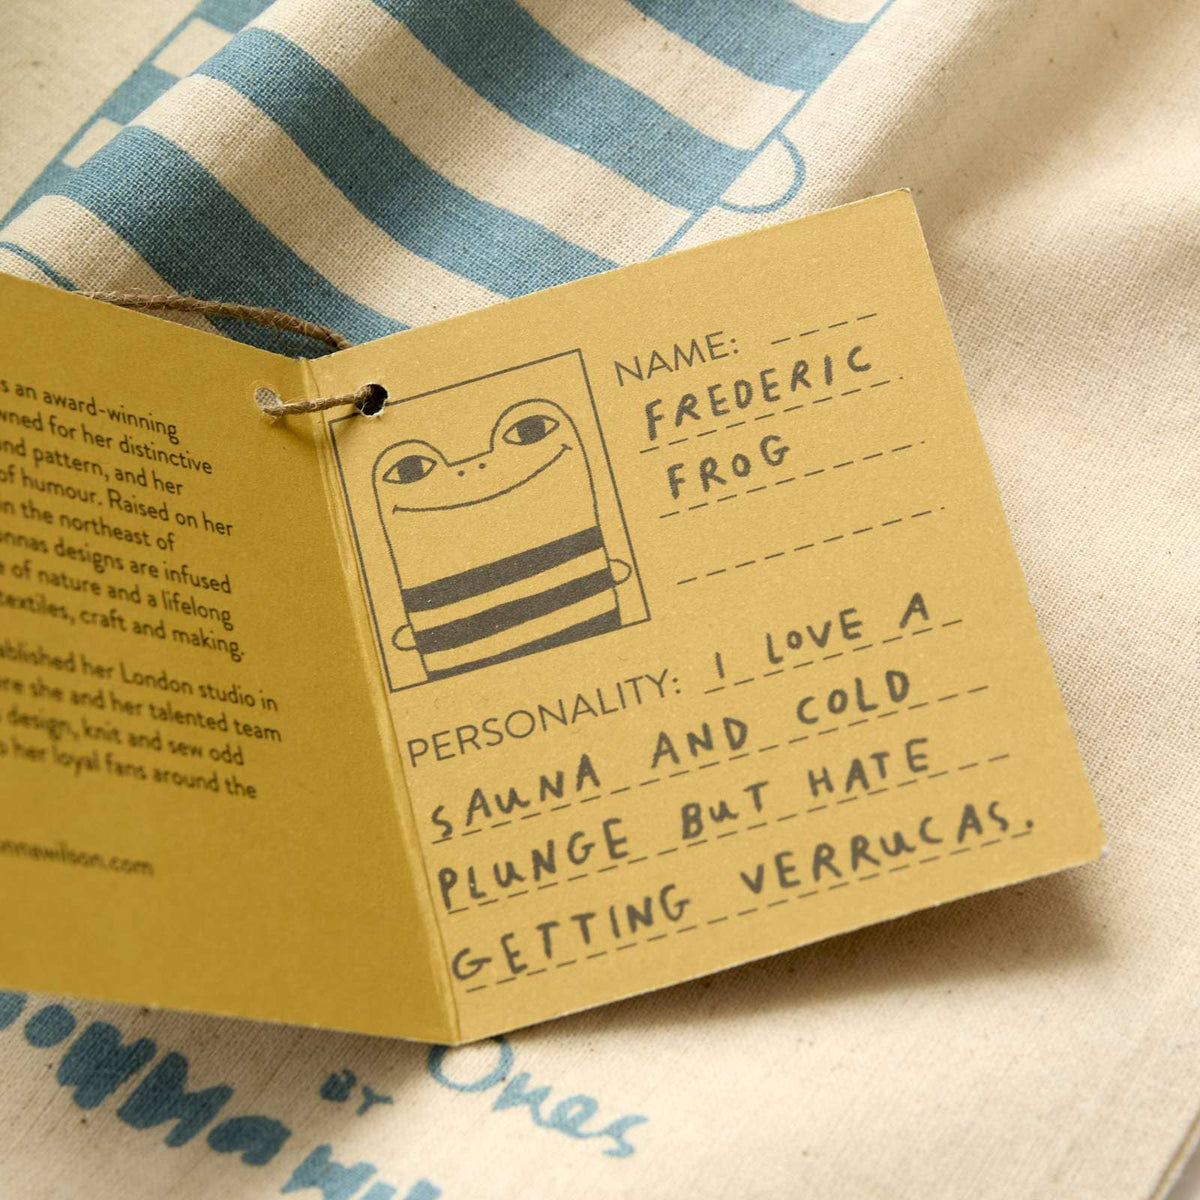 s an award-winning
wned for her distinctive
nd pattern, and her
of humour. Raised on her
n the northeast of
onnas designs are infused
e of nature and a lifelong
textiles, craft and making.
ablished her London studio in
ere she and her talented team
design, knit and sew odd
o her loyal fans around the
onnawilson.com
NAME:
FREDERIC
FROG
PERSONALITY: I LOVE A
SAUNA AND COLD
PLUNGE BUT HATE
GETTING VERRUCAS.
Ones
BY